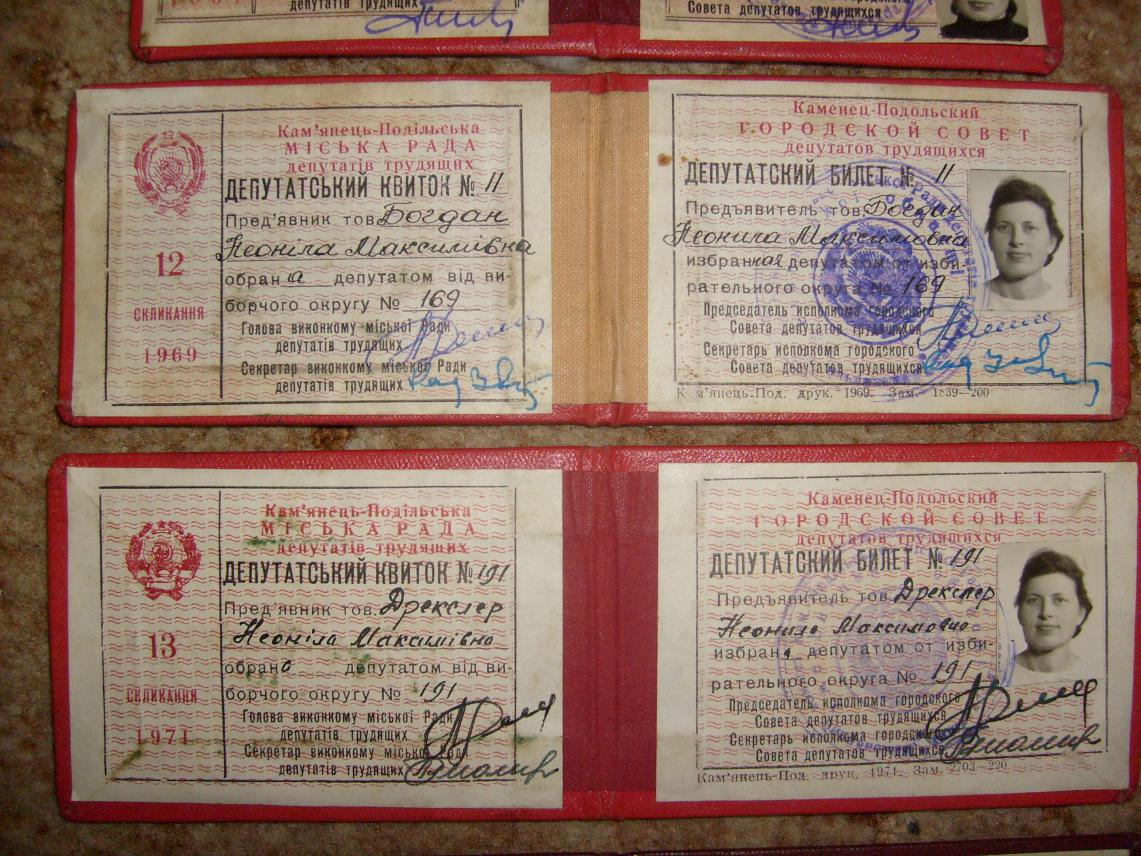 депутатів трудящих
Совета депутатов трудящихся
Кам'янець-Подільська
МІСЬКА РАДА
депутатів трудящих
ДЕПУТАТСЬКИЙ КВИТОК № 11
Пред'явник тов. Богдан
Неоніла Максимівна
обрана депутатом від ви-
борчого округу № 169
Голова виконкому міської Ради
депутатів трудящих
Секретар виконкому міської Ради
депутатів трудящих
12
СКЛИКАННЯ
1969
Каменец-Подольский
ГОРОДСКОЙ СОВЕТ
депутатов трудящихся
ДЕПУТАТСКИЙ БИЛЕТ № 11
Предъявитель тов. Богдан
Неонила Максимовна
избранная депутатом от изби-
рательного округа № 169
Председатель исполкома городского
Совета депутатов трудящихся
Секретарь исполкома городского
Совета депутатов трудящихся
Кам'янець-Под. друк. 1969. Зам. 1839—200
Кам'янець-Подільська
МІСЬКА РАДА
депутатів трудящих
ДЕПУТАТСЬКИЙ КВИТОК № 191
Пред'явник тов. Дрекслер
Неоніла Максимівна
обрана депутатом від ви-
борчого округу № 191
Голова виконкому міської Ради
депутатів трудящих
Секретар виконкому міської Ради
депутатів трудящих
13
СКЛИКАННЯ
1971
Каменец-Подольский
ГОРОДСКОЙ СОВЕТ
депутатов трудящихся
ДЕПУТАТСКИЙ БИЛЕТ № 191
Предъявитель тов. Дрекслер
Неонила Максимовна
избрана депутатом от изби-
рательного округа № 191
Председатель исполкома городского
Совета депутатов трудящихся
Секретарь исполкома городского
Совета депутатов трудящихся
Кам'янець-Под. друк. 1971. Зам. 2703—220